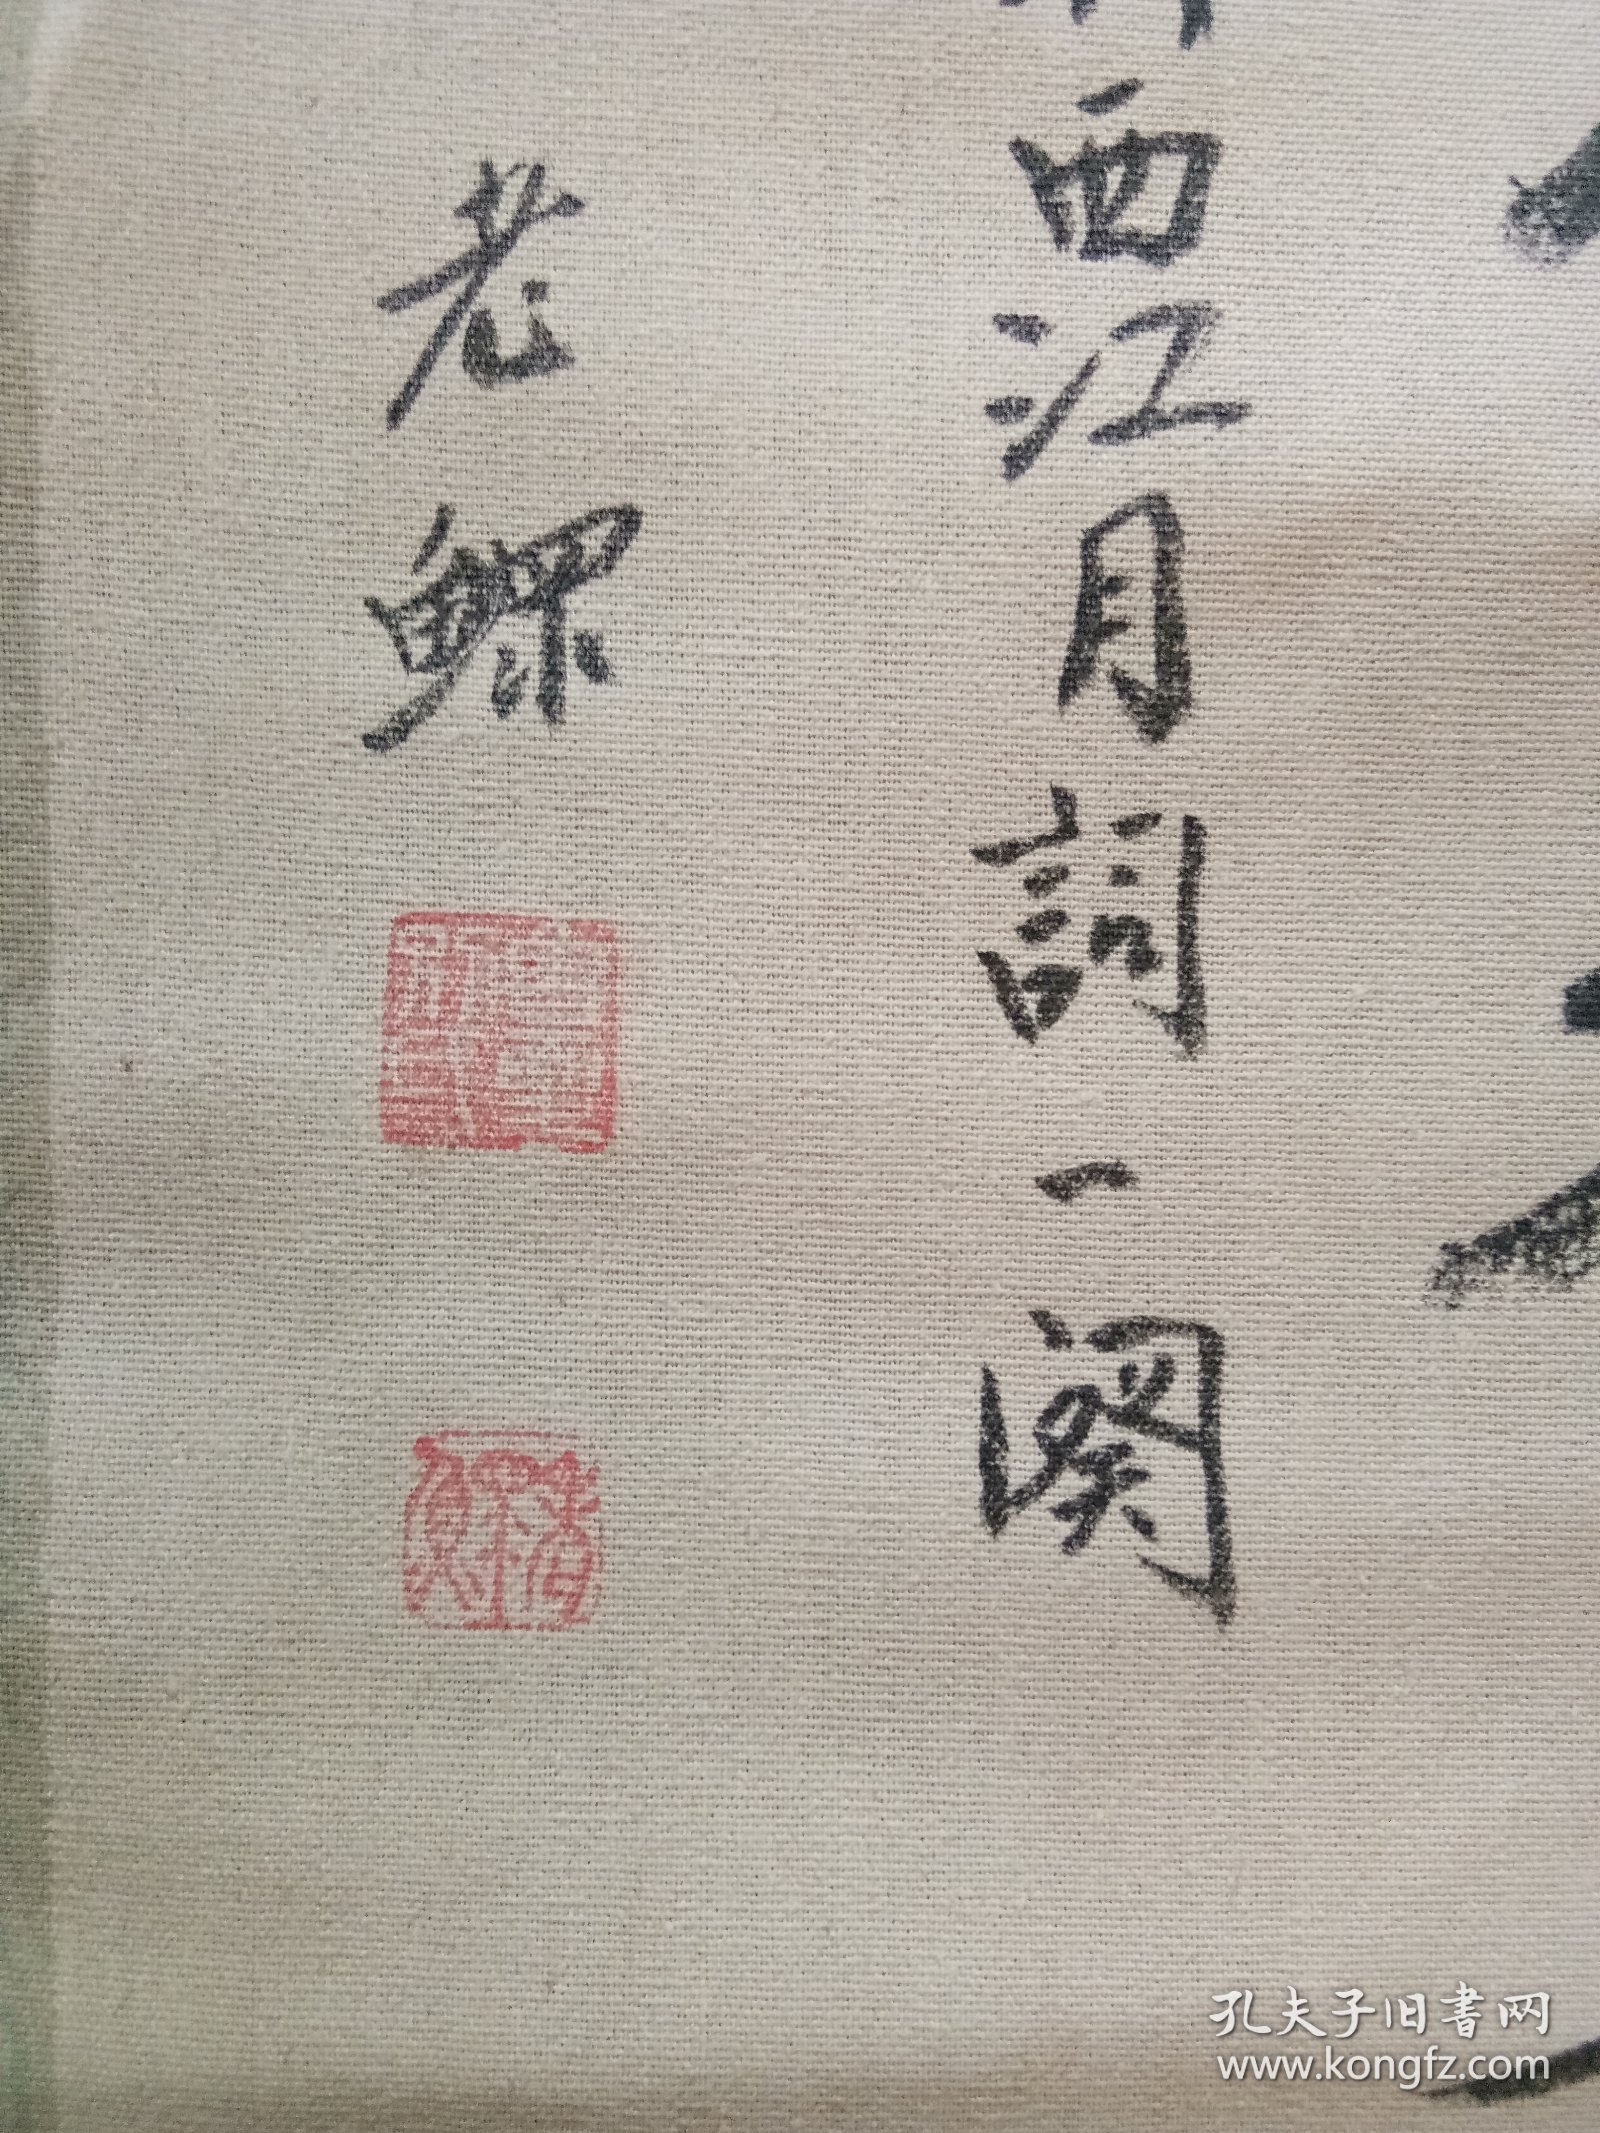 西江月詞一闋
老鰥
孔夫子旧書网
www.kongfz.com